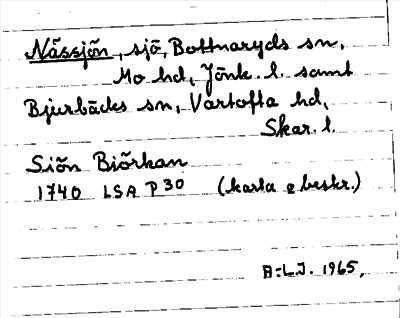 Nässjön, sjö, Bottnaryds sn,
Mo hd, Jönk. l. samt
Bjurbäcks sn, Vartofta hd,
Skar. l.
Siön Biörkan
1740 LSA P 30 (karta o beskr.)
A-L.J. 1965,